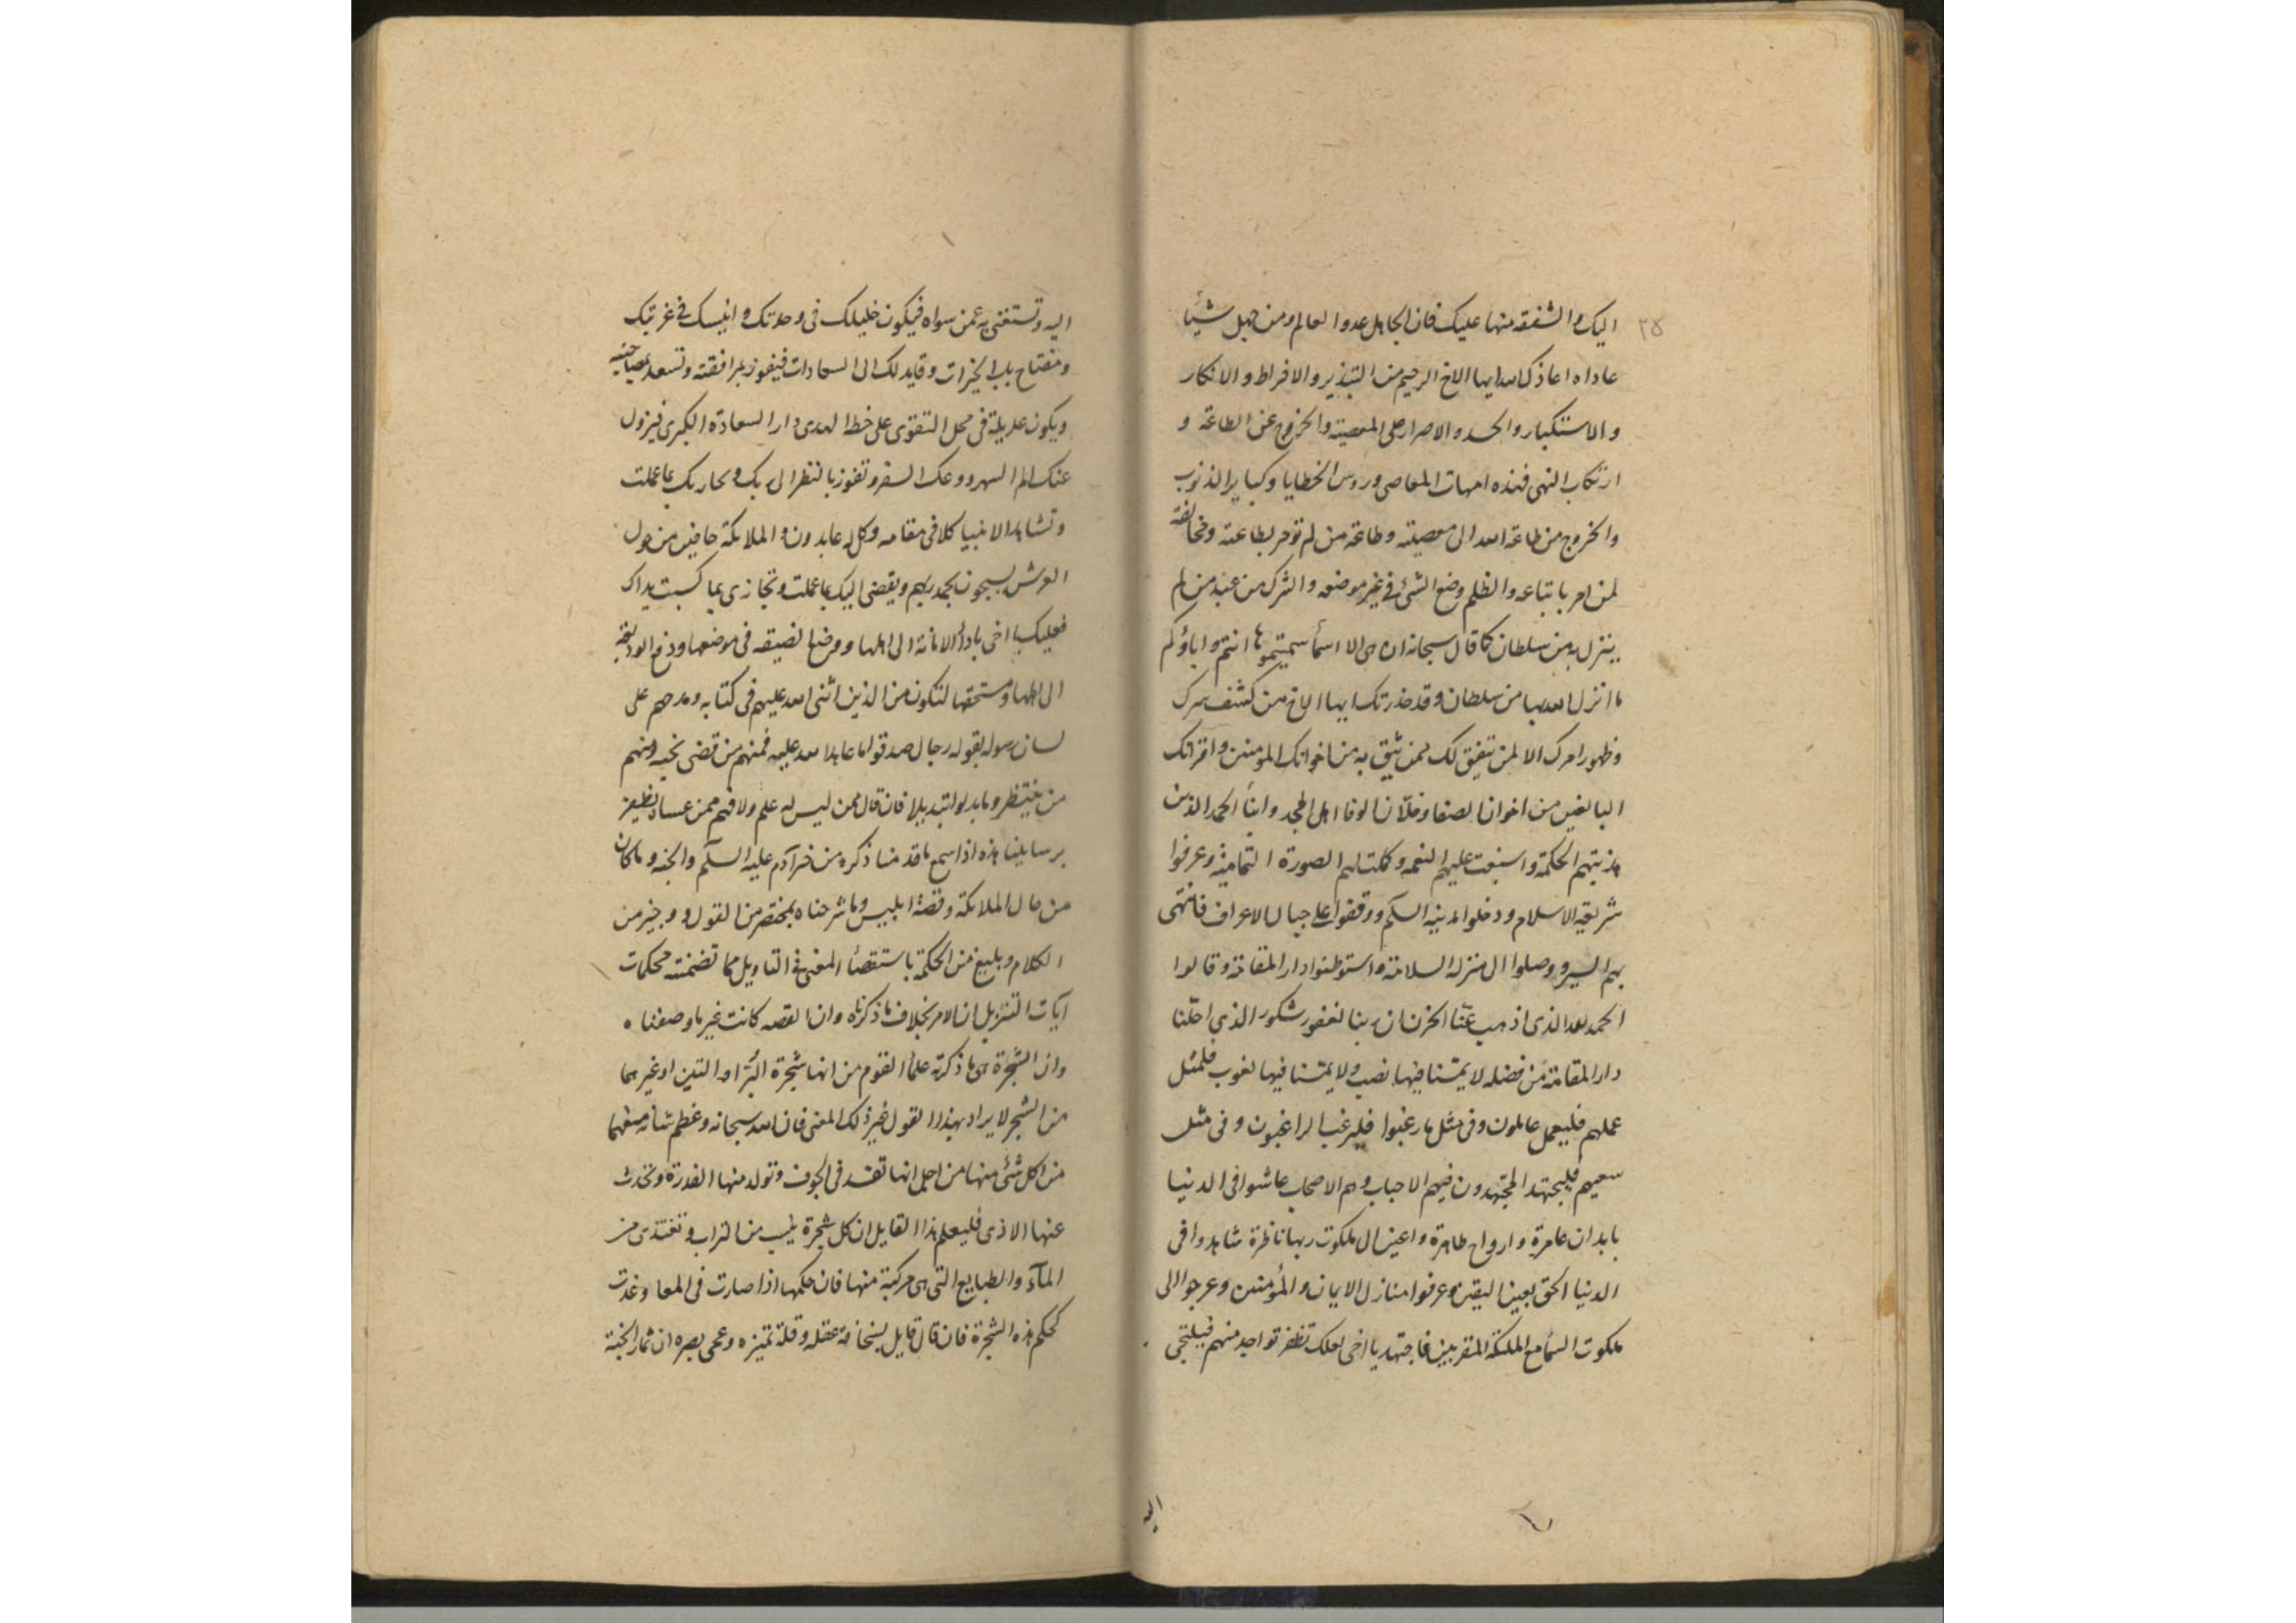 ٢٥
اليك والشفقه منها عليك فان الجاهل عدو العالم ومن جهل شيئا
عاداه اعاذك الله ايها الاخ الرحيم من التبذير والافراط والانكار
والاستكبار والحسد والاصرار على المعصية والخروج عن الطاعة و
ارتكاب النهى فهذه امهات المعاصى وروس الخطايا وكباير الذنوب
والخروج من طاعة الله الى معصيته وطاعة من لم تؤمر بطاعته ومخالفة
لمن امر باتباعه والظلم وضع الشئ فى غير موضعه والشرك من عند من لم
ينزل به من سلطان كما قال سبحانه ان هى الا اسمأ سميتموها انتم واباؤكم
ما انزل الله بها من سلطان وقد حذرتك ايها الاخ من كشف سرك
وظهور امرك الا لمن يتفق لك ممن تثق به من اخوانك المؤمنين واقرانك
البالغين من اخوان الصفا وخلّان الوفا اهل المجد وابنأ الحمد الذين
هذبتهم الحكمة واسبغت عليهم النعمه وكملت لهم الصورة التمامية وعرفوا
شريعة الاسلام ودخلوا مدينة السلم ووقفوا على جبال الاعراف فانتهى
بهم السير ووصلوا الى منزلة السلامة واستوطنوا دار المقامة وقالوا
الحمد لله الذى اذهب عنّا الحزن ان ربنا لغفور شكور الذى احلّنا
دار المقامة من فضله لا يمسّنا فيها نصب ولا يمسّنا فيها لغوب فلمثل
عملهم فليعمل عاملون وفى مثل ما رغبوا فليرغب الراغبون وفى مثل
سعيهم فليجتهد المجتهدون فهم الاحباب وهم الاصحاب عاشوا فى الدنيا
بابدان عامرة وارواح طاهرة واعين الى ملكوت ربها ناظرة شاهدوا فى
الدنيا الحق بعين اليقين وعرفوا منازل الايمان والمؤمنين وعرجوا الى
ملكوت السمأ مع الملئكة المقربين فاجتهد يا اخى لعلك تظفر بواحد منهم فيلتجى
اليه
اليه وتستغنى به عمن سواه فيكون خليلك فى وحدتك وانيسك فى غربتك
ومفتاح باب الخيرات وقايد لك الى السعادات فيفوز بمرافقته وتسعد بمصاحبته
ويكون عديلة فى محل التقوى على خط الهدى دار السعادة الكبرى فيزول
عنك الم السهر ووعك السفر وتفوز بالنظر الى ربك ويحاربك بما عملت
وتشاهد الانبيا كلا فى مقامه وكل له عابدون والملائكة حافين من حول
العرش يسبحون بحمد ربهم ويقضى اليك بما عملت وتجازى بما كسبت يداك
فعليك يا اخى بادأ الامانة الى اهلها ووضع الصنيعه فى موضعها ودفع الوديعة
الى اهلها ومستحقها لتكون من الذين اثنى الله عليهم فى كتابه ومدحهم على
لسان رسوله بقوله رجال صدقوا ما عاهدوا الله عليه فمنهم من قضى نحبه ومنهم
من ينتظر وما بدلوا تبديلا فان قال ممن ليس له علم ولا فهم ممن عساه يظفر
برسايلنا هذه اذا سمع ما قدمنا ذكره من خبر آدم عليه السلم والجنه وما كان
من حال الملائكة وقصة ابليس وما شرحناه بمختصر من القول ووجيز من
الكلام وبليغ من الحكمة باستقصأ المعنى فى التاويل مما تضمنته محكمات
آيات التنزيل ان الامر بخلاف ما ذكرناه وان القصه كانت غير ما وصفناه
وان الشجرة هى ما ذكرته علمأ القوم من انها شجرة البرّ او التين او غيرهما
من الشجر لا يراد بهذا القول غير ذلك المعنى فان الله سبحانه وعظم شأنه منعهما
من اكل شئ منها من اجل انها تفسد فى الجوف وتولد منها القذرة وتحدث
عنها الاذى فليعلم هذا القايل ان كل شجرة نبت من التراب وتغتذى من
المآء والطبايع التى هى مركبة منها فان حكمها اذا صارت فى المعا وغدت
كحكم هذه الشجرة فان قال قايل بسخافة عقله وقلة تميزه وعمى بصره ان ثمار الجنة